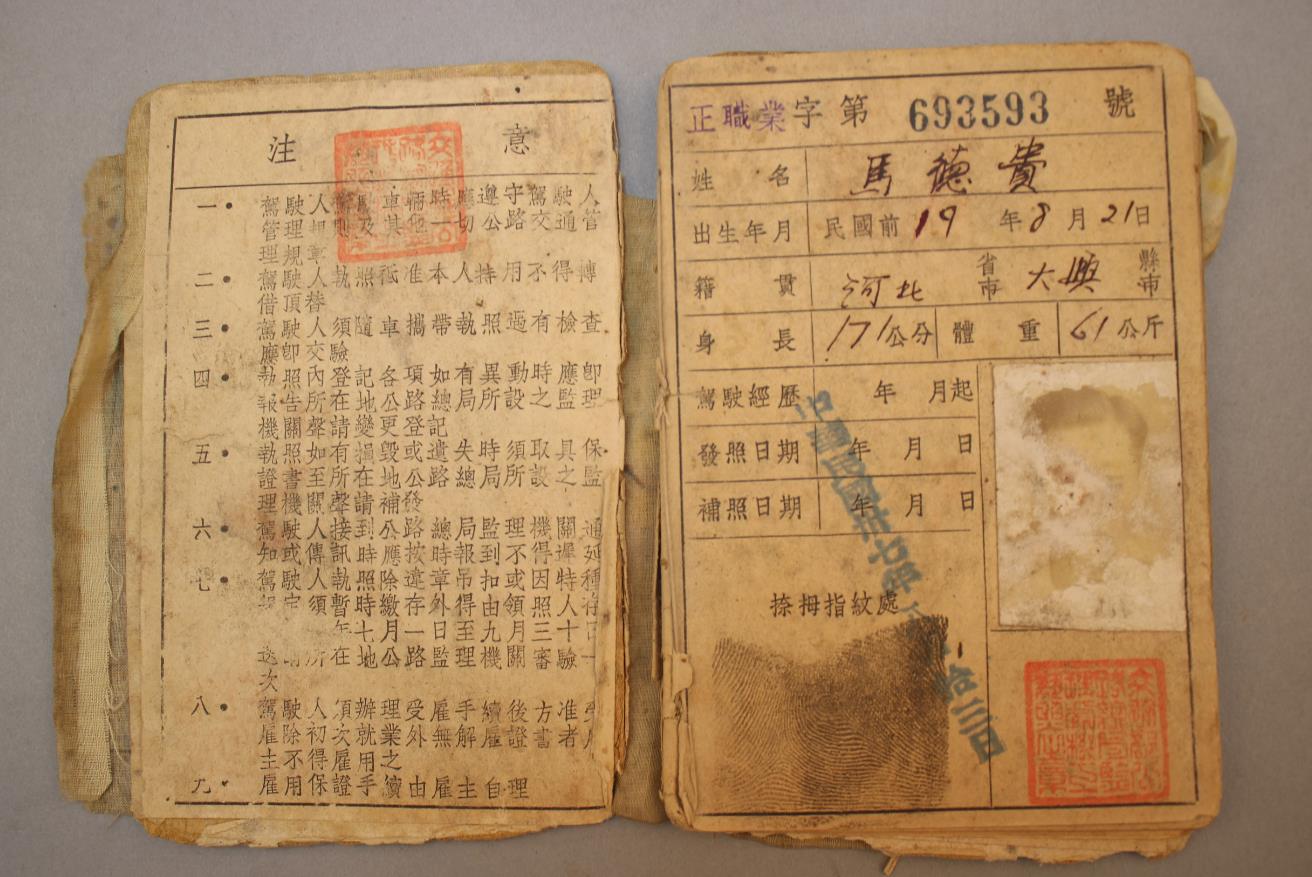 注 意
一．駕駛人駕駛車輛時應遵守駕駛人
管理規則及其他一切公路交通管
理規章
二．駕駛人執照祗准本人持用不得轉
借頂替
三．駕駛人須隨車攜帶執照遇有檢查
應即交驗
四．執照內登記各項如有異動時應即
報告所在地公路總局所設之監理
機關聲請變更登記
五．執照如有損毀或遺失時須取具保
證書至所在地公路總局所設之監
理機關聲請補發
六．駕駛人接到公路總局監理機關通
知或傳訊時應按時報到不得遲延
七．駕駛人執照除違章吊扣或因特種
須暫時繳存外得由領照人存
年七月一日至九月三十日
所在地公路監理機關審驗一
次
八．駕駛人須辦理受雇手續後方准受
雇除初次就業外無雇解證書者
主不得雇用之
九．雇用保證手續由雇主自理
正職業字第 693593 號
姓名 馬德貴
出生年月 民國前19年8月21日
籍貫 河北省市 大興縣市
身長 171公分 體重 61公斤
駕駛經歷 年 月起
發照日期 年 月 日
補照日期 年 月 日
中華民國卅七年 月拾二日
捺拇指紋處